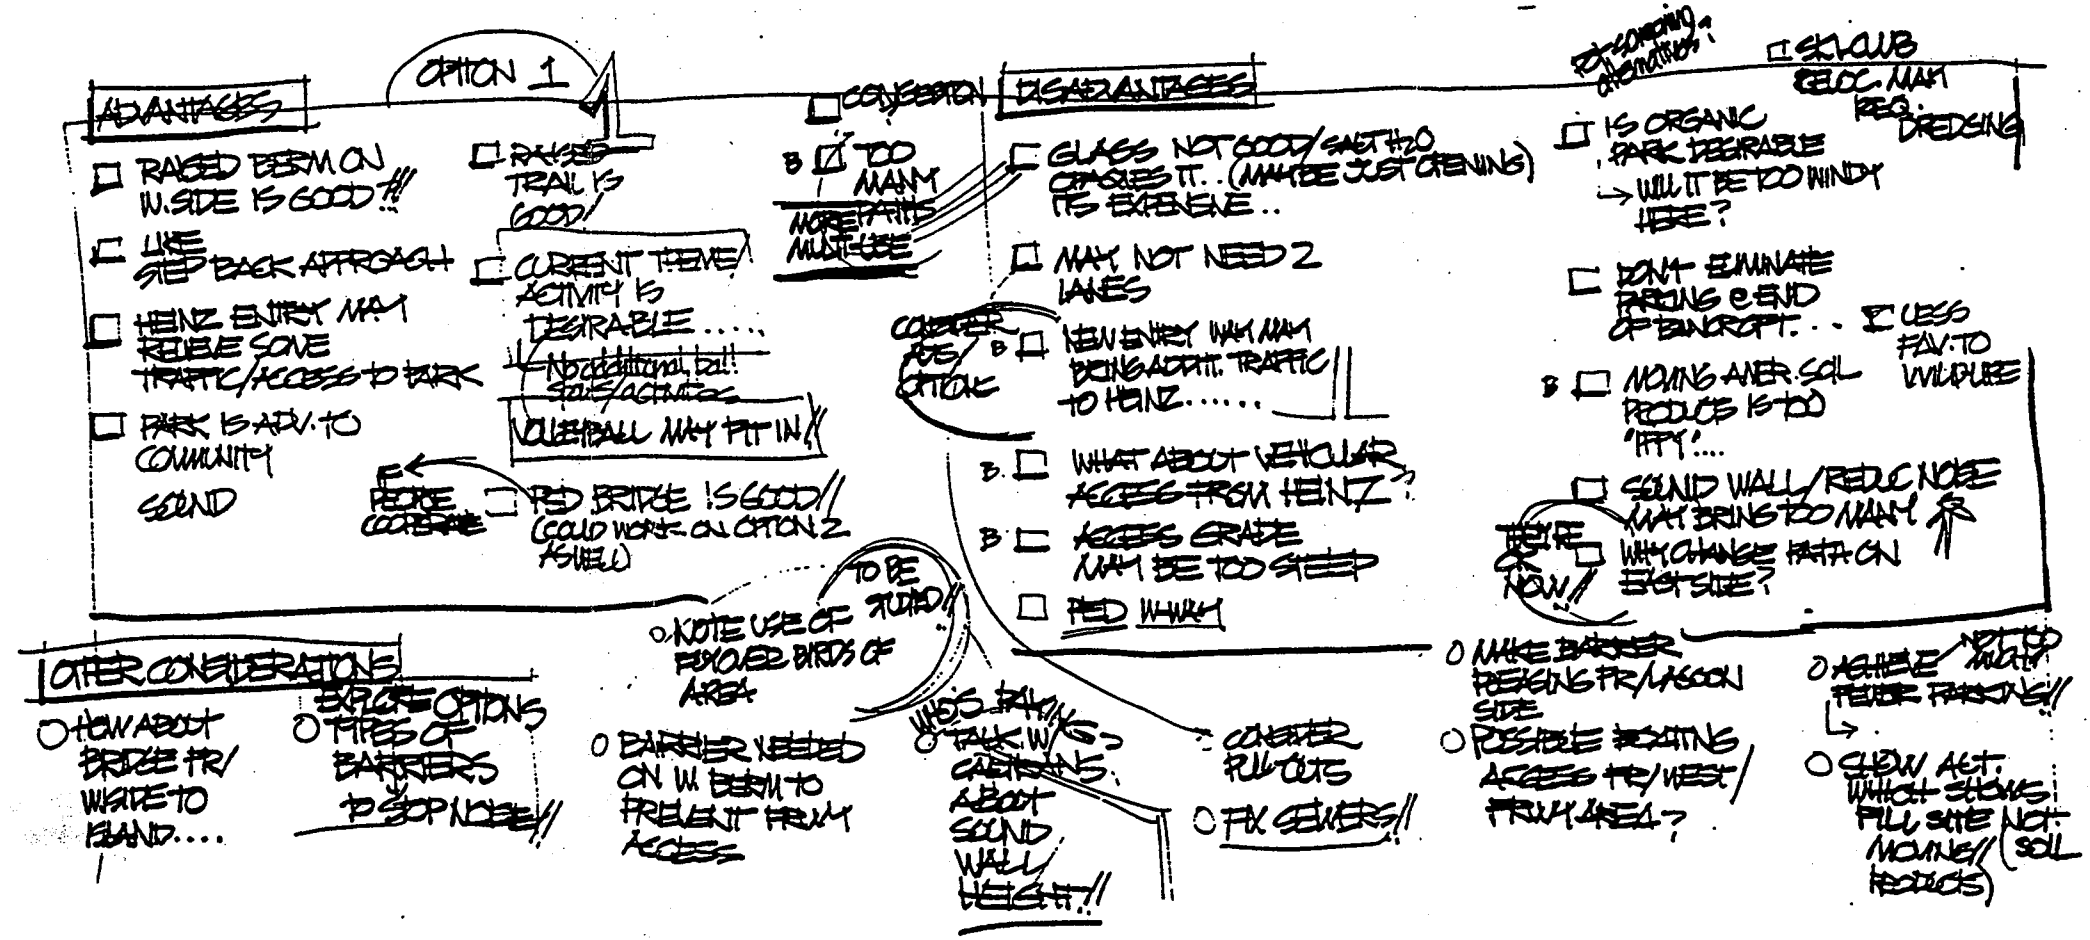 OPTION 1
ADVANTAGES
RAISED BERM ON
W. SIDE IS GOOD!!!
LIKE
STEP BACK APPROACH
HEINZ ENTRY MAY
RELIEVE SOME
TRAFFIC/ACCESS TO PARK
PARK IS ADV. TO
COMMUNITY
SOUND
RAISED
TRAIL IS
GOOD!
CURRENT THEME/
ACTIVITY IS
DESIRABLE.....
No additional ball
VOLLEYBALL MAY FIT IN!!
IF
PEOPLE
COOPERATE
PED. BRIDGE IS GOOD!!
(COULD WORK ON OPTION 2
AS WELL)
CONGESTION
B TOO
MANY
PATHS
MORE
MULTI-USE
DISADVANTAGES
GLASS NOT GOOD/SALT H2O
OPAQUES IT.. (MAYBE JUST OPENING)
IT'S EXPENSIVE..
MAY NOT NEED 2
LANES
CONSIDER
OPTIONS
B NEW ENTRY WAY MAY
BRING ADDIT. TRAFFIC
TO HEINZ......
B. WHAT ABOUT VEHICULAR
ACCESS FROM HEINZ?
B. ACCESS GRADE
MAY BE TOO STEEP
PED W-WAY
alternatives?
SKI-CLUB
RELOC. MAY
REQ.
DREDGING
IS ORGANIC
PARK DESIRABLE
WILL IT BE TOO WINDY
HERE?
DON'T ELIMINATE
PARKING @ END
OF BANCROFT....
LESS
FAV. TO
WILDLIFE
B MOVING AMER. SOIL
PRODUCTS IS TOO
"IFFY"....
SOUND WALL/REDUC NOISE
MAY BRING TOO MANY
THEY'RE
OK
NOW!!
WHY CHANGE PATH ON
EAST SIDE?
OTHER CONSIDERATIONS
HOW ABOUT
BRIDGE FR/
W. SIDE TO
ISLAND....
EXPLORE OPTIONS
TYPES OF
BARRIERS
TO STOP NOISE!!
TO BE
STUDIED!!
NOTE USE OF
FLYOVER BIRDS OF
AREA
BARRIER NEEDED
ON W. BERM TO
PREVENT FRWY
ACCESS
WHO'S PAYING
TALK W/
CALTRANS
ABOUT
SOUND
WALL
HEIGHT!!
CONSIDER
PULL-OUTS
FIX SEWERS!!
MAKE BARRIER
PLEASING FR/LAGOON
SIDE
POSSIBLE BOATING
ACCESS FR/WEST/
FRWY AREA?
NOT TOO
MUCH!
ACHIEVE
FEWER PARKING!!
SHOW ALT.
WHICH SHOWS
FILL SITE NOT
MOVING!! (SOIL
PRODUCTS)